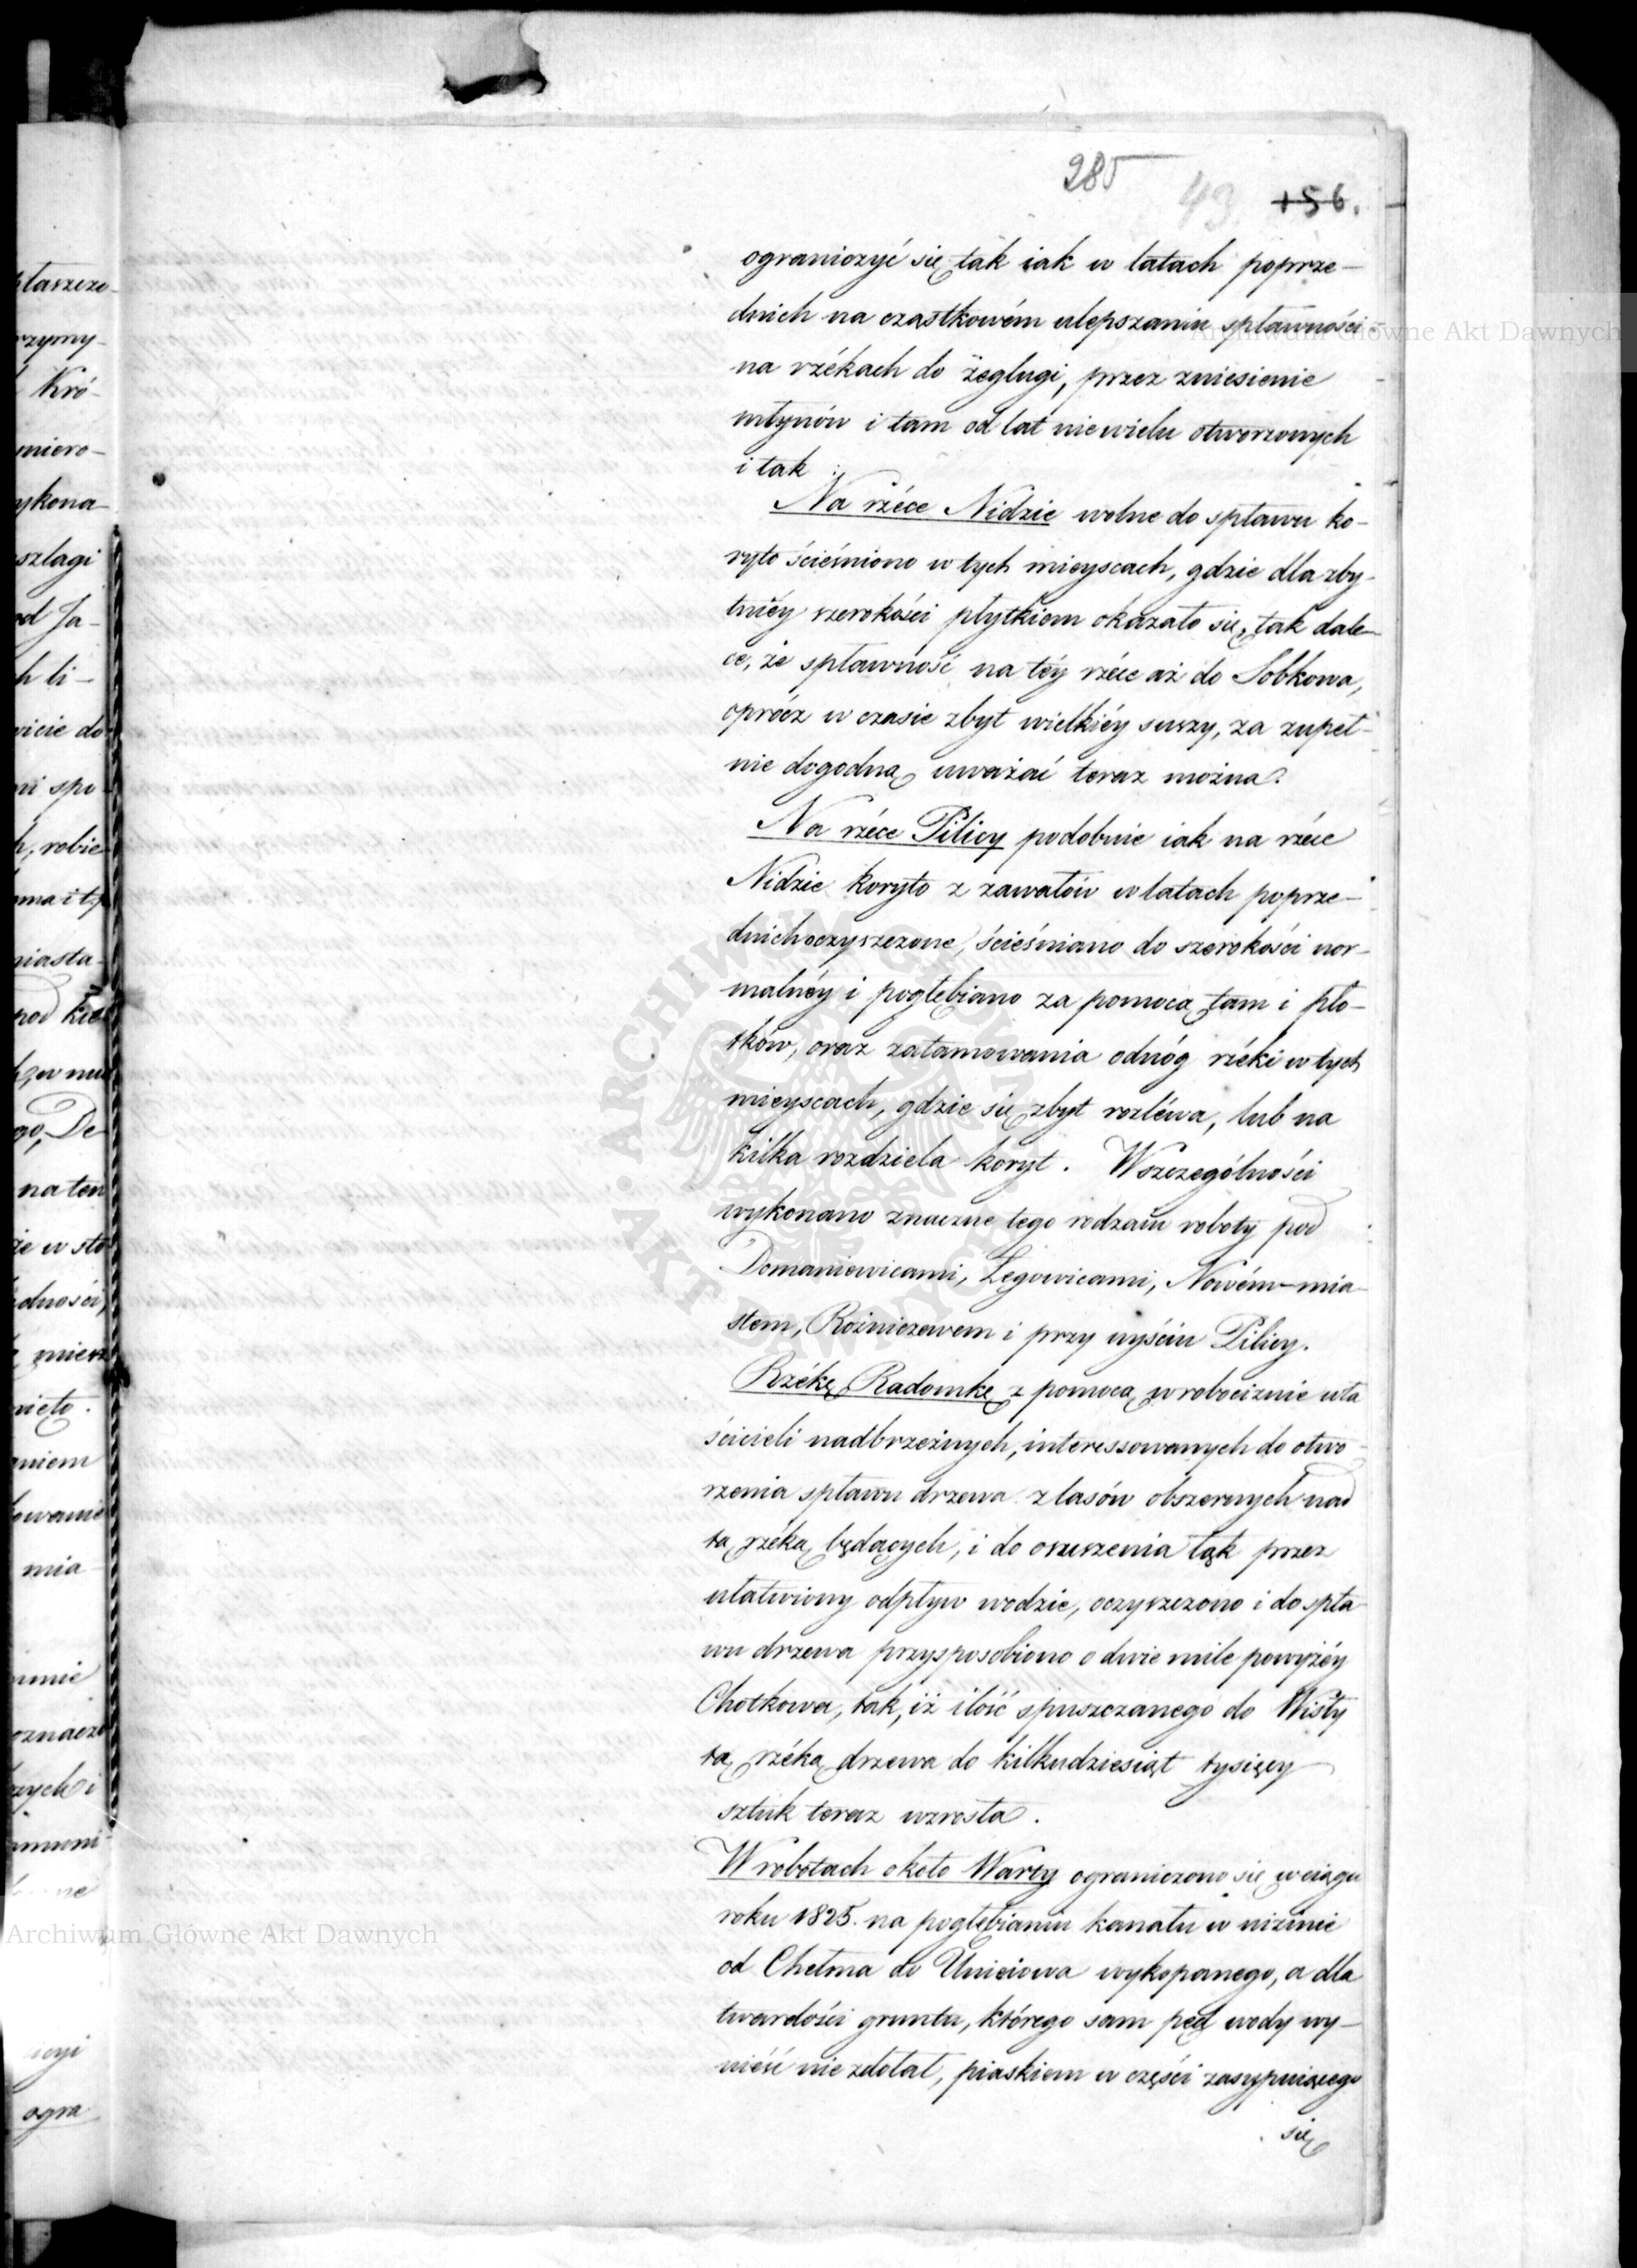 285
43
156.
ograniczyć się tak iak w latach poprze-
dnich na cząstkowém ulepszaniu spławności
na rzékach do żeglugi, przez zniesienie
młynów i tam od lat niewielu otworzonych
i tak :
Na rzéce Nidzie wolne do spławu ko-
ryto ścieśniono w tych mieyscach, gdzie dla zby-
tniéy szerokości płytkiem okazało się, tak dale-
ce, że spławność na téy rzéce aż do Sobkowa,
oprócz w czasie zbyt wielkiéy suszy, za zupeł-
nie dogodną uważać teraz można.
Na rzéce Pilicy podobnie iak na rzéce
Nidzie koryto z zawałów w latach poprze-
dnich oczyszczone, ścieśniano do szerokości nor-
malnéy i pogłębiano za pomocą tam i pło-
tków, oraz zatamowania odnóg rzéki w tych
mieyscach, gdzie się zbyt rozléwa, lub na
kilka rozdziela koryt. W szczególności
wykonano znaczne tego rodzaiu roboty pod
Domaniewicami, Łęgowicami, Nowém-mia-
stem, Rożniszewem i przy uyściu Pilicy.
Rzékę Radomkę z pomocą w robociznie wła
ścicieli nadbrzeżnych, interessowanych do otwo-
rzenia spławu drzewa z lasów obszernych nad
tą rzéką będących, i do osuszenia łąk przez
ułatwiony odpływ wodzie, oczyszczono i do spła
wu drzewa przysposobiono o dwie mile powyżéy
Chotkowa, tak, iż ilość spuszczanego do Wisły
tą rzéką drzewa do kilkudziesiąt tysięcy
sztuk teraz wzrosła.
W robotach około Warty ograniczono się w ciągu
roku 1825. na pogłębianiu kanału w nizinie
od Chełma do Unieiowa wykopanego, a dla
twardości gruntu, którego sam pęd wody wy-
nieść nie zdołał, piaskiem w części zasypuiącego
się
Archiwum Główne Akt Dawnych
Archiwum Główne Akt Dawnych